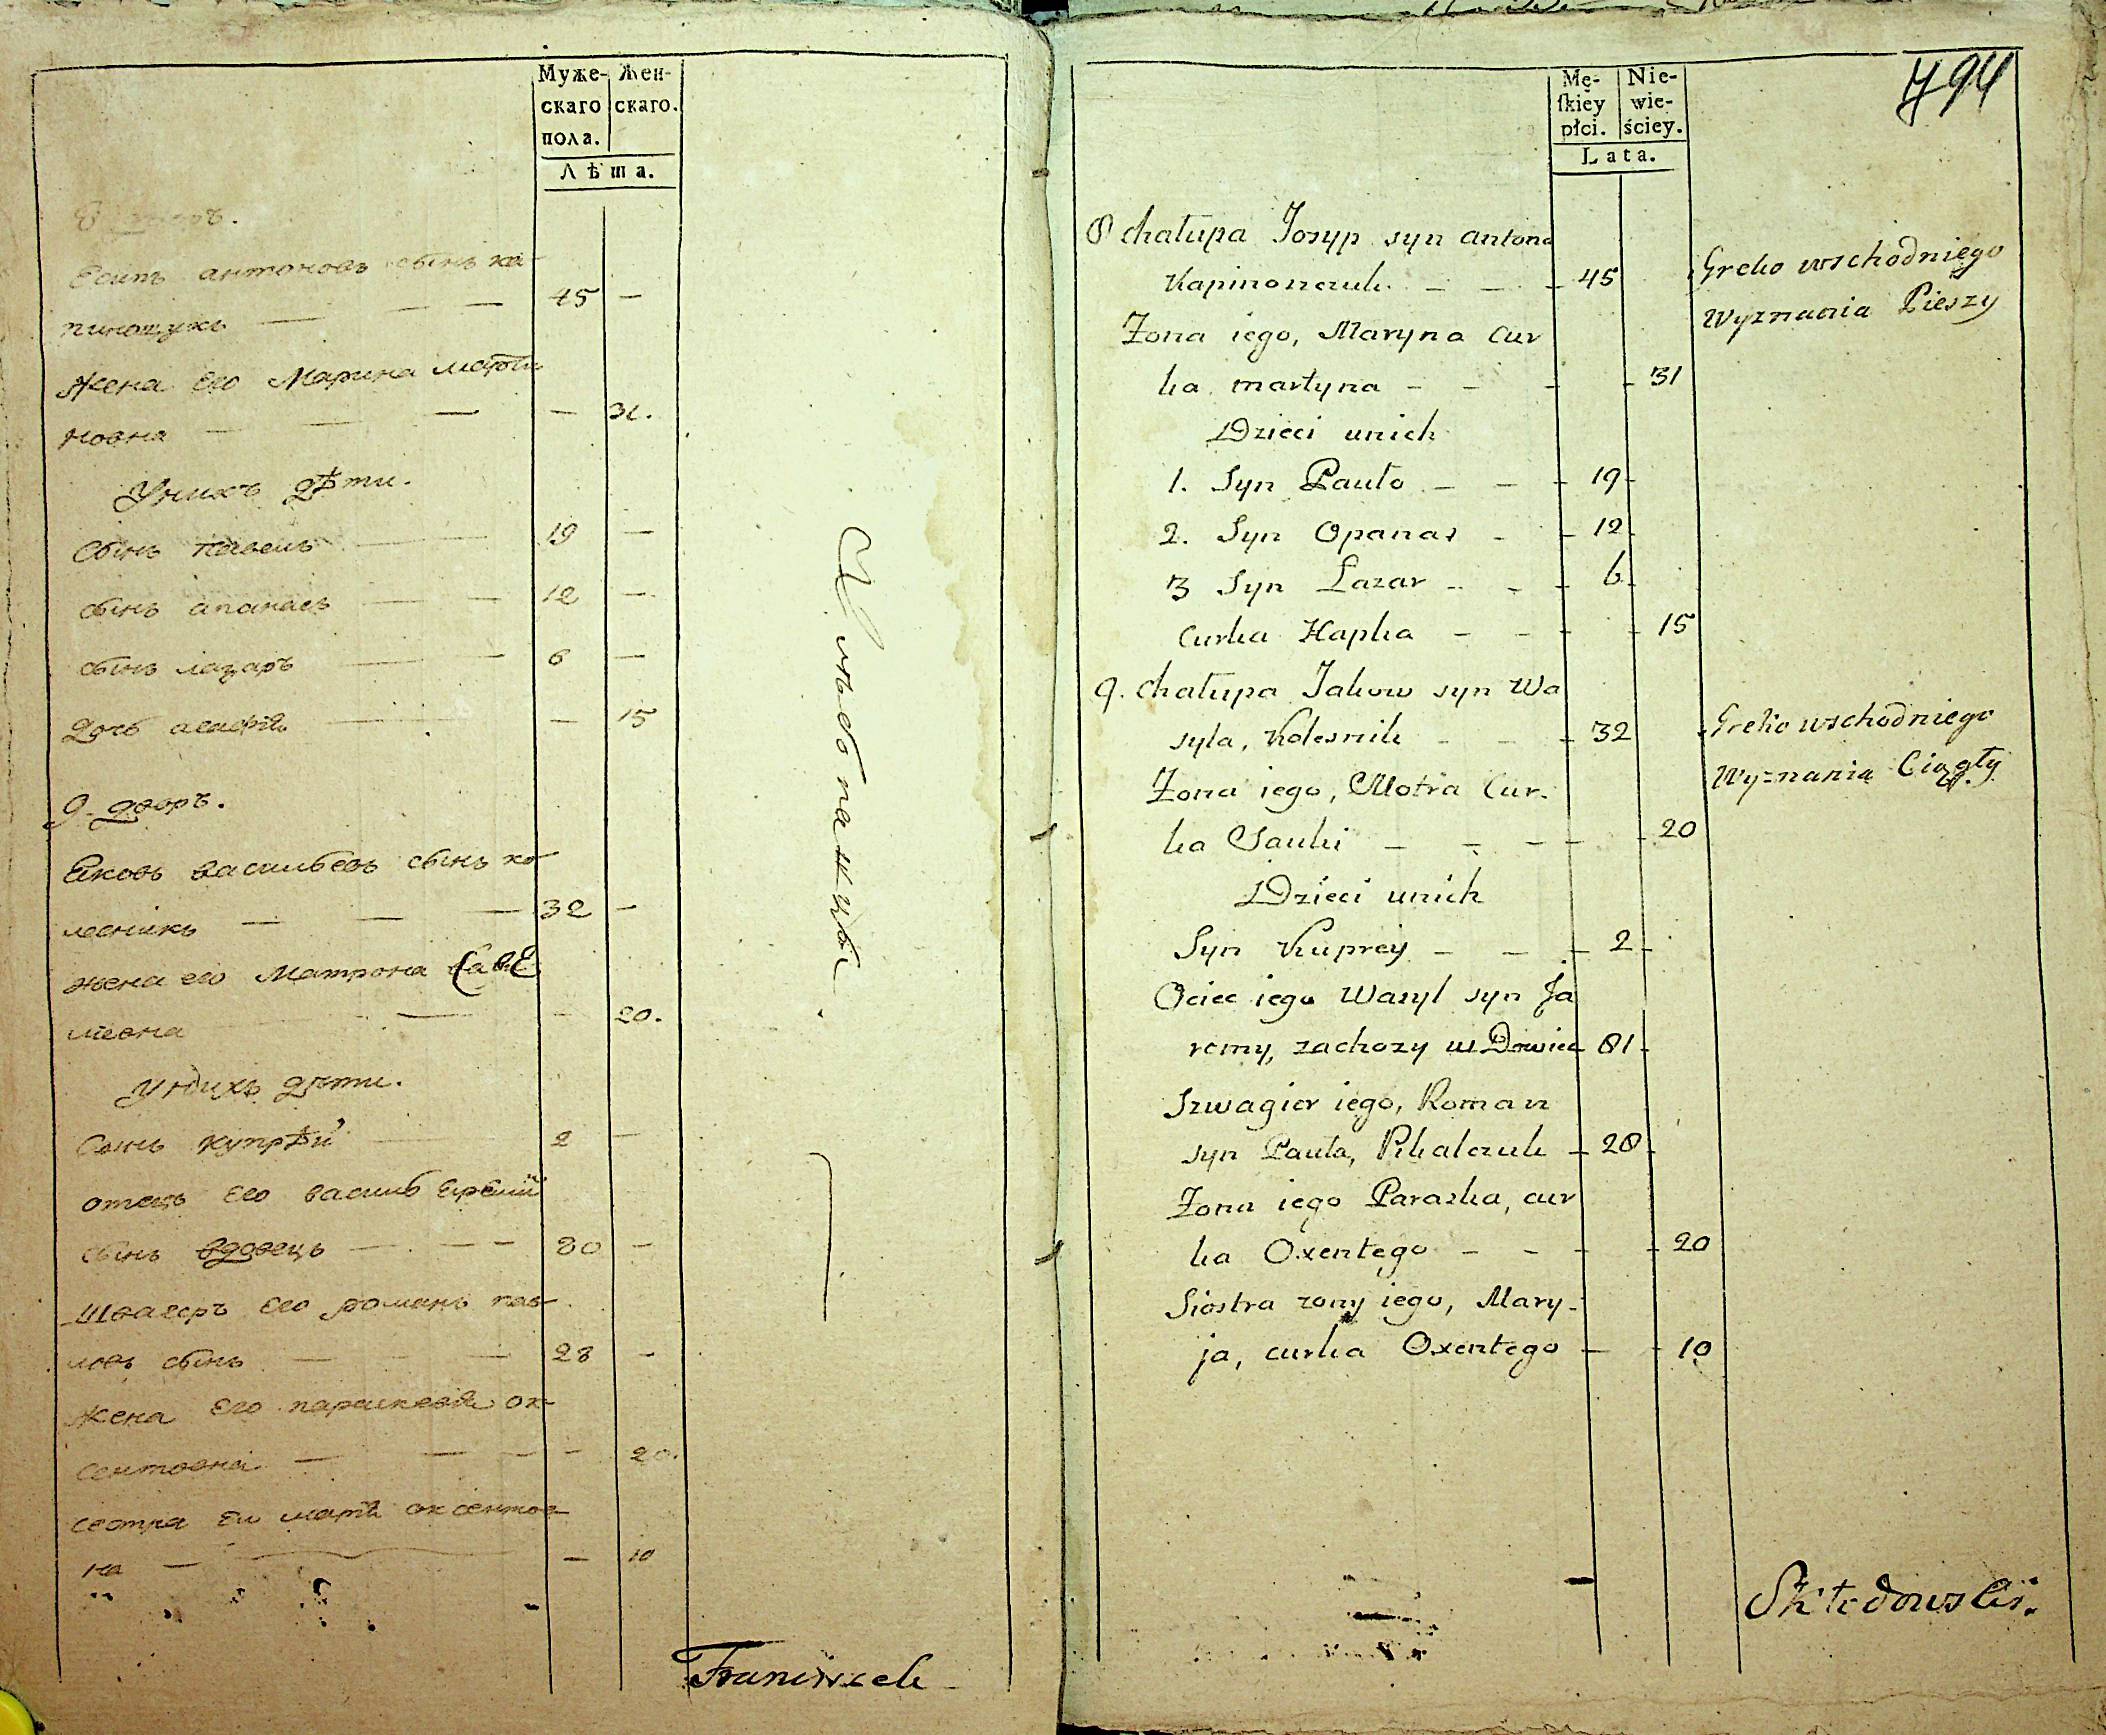 Муже-
скаго
пола.
Жен-
скаго.
Лѣта.
8 дворъ.
Есипъ антоновъ сынъ ка-
пинощукъ — — — 45 —
Жена его Марина марты
новна — — — — 31.
Унихъ дѣти.
Сынъ павелъ — — 19 —
сынъ апанасъ — — 12 —
сынъ лазаръ — — 6 —
дочь агафія — — 15
9. дворъ.
Яковъ васильевъ сынъ ко-
лесникъ — — — 32 —
жена его Матрона Саве
лiевна — — 20.
унихъ дѣти.
Сынъ купрѣй — 2 —
отецъ его василь
сынъ вдовецъ — — — 80 —
швагеръ его романъ пав-
ловъ сынъ — — — 28 —
жена его параскевія ок-
сентовна — — — — 20.
сестра ея марія оксентов-
на — — 10
Хлебопашцы.
Franciszek
794
Mę-
ſkiey
płci.
Nie-
wie-
ściey.
Lata.
8 chałupa Josyp syn antona
Kapinonczuk. — — — 45
Greko wschodniego
Wyznania Pieszy
Żona iego, Maryna cur
ka martyna — — — 31
Dzieci unich
1. Syn Pauło — — — 19
2. Syn Opanas — — 12
3 Syn Łazar — — — 6
Curka Hapka — — — 15
9. chałupa Jakow syn Wa
syla, Kolesnik — — — 32
Greko wschodniego
Wyznania Ciągły
Żona iego, Motra Cur-
ka Sauki — — — — 20
Dzieci unich
Syn Kuprey — — — 2
Ociec iego Wasyl syn Ja
remy, zachozy w 81
Szwagier iego, Roman
syn Pauła, — 28
Żona iego Paraska, cur
ka Oxentego — — — 20
Siostra zony iego, Mary-
ja, curka Oxentego — — 10
Skłodowski.